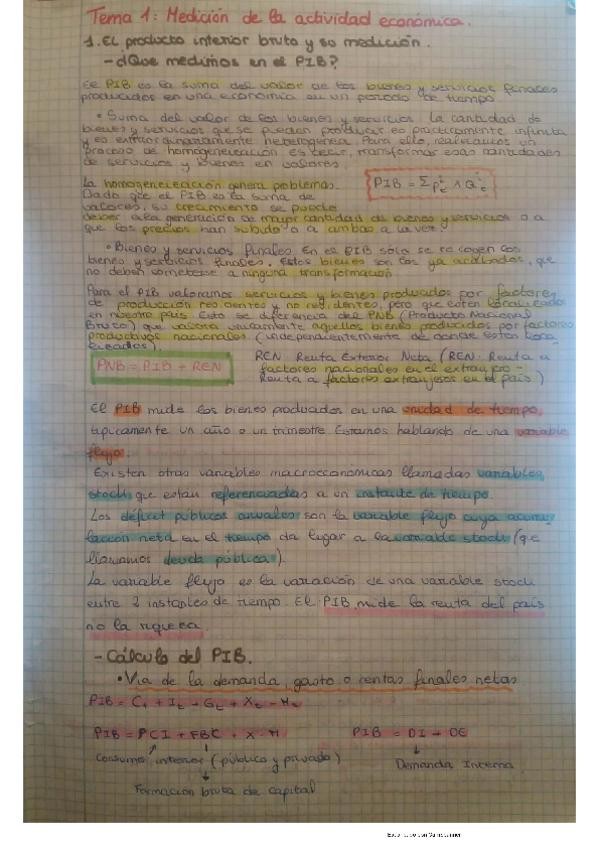 Tema 1: Medición de la actividad económica.
1. El producto interior bruto y su medición.
- ¿Que medimos en el PIB?
El PIB es la suma del valor de los bienes y servicios finales
producidos en una economía en un periodo de tiempo.
• Suma del valor de los bienes y servicios. La cantidad de
bienes y servicios que se pueden producir es practicamente infinita
y es extraordinariamente heterogenea. Para ello, realizamos un
proceso de homogeneización es decir, transformar esas cantidades
de servicios y bienes en valores.
La homogeneización genera problemas.
Dado que el PIB es la suma de
valores, su crecimiento se puede
deber a la generación de mayor cantidad de bienes y servicios o a
que los precios han subido o a ambas a la vez.
• Bienes y servicios finales. En el PIB solo se recogen los
bienes y servicios finales. Estos bienes son los ya acabados, que
no deben someterse a ninguna transformación
Para el PIB valoramos servicios y bienes producidos por factores
de producción residentes y no residentes, pero que esten localizados
en nuestro país. Esto se diferencia del PNB (Producto Nacional
Bruto) que valora unicamente aquellos bienes producidos por factores
productivos nacionales (independientemente de donde esten loca
lizados).
PNB = PIB + REN
REN Renta Exterior Neta (REN: Renta a
factores nacionales en el extranjero -
Renta a factores extranjeros en el país)
El PIB mide los bienes producidos en una unidad de tiempo,
tipicamente un año o un trimestre. Estamos hablando de una variable
flujo.
Existen otras variables macroeconomicas llamadas variables
stock, que estan referenciadas a un instante de tiempo.
Los déficit públicos anuales son la variable flujo cuya acumu-
lación neta en el tiempo da lugar a la variable stock (que
llamamos deuda pública).
La variable flujo es la variación de una variable stock
entre 2 instantes de tiempo. El PIB mide la renta del país
no la riqueza.
- Cálculo del PIB.
• Via de la demanda, gasto o rentas finales netas
PIB = Ct + It + Gt + Xt - Mt
PIB = PCI + FBC + X - M
PIB = DI + DE
Consumo interior (público y privado)
Demanda Interna
Formación bruta de capital